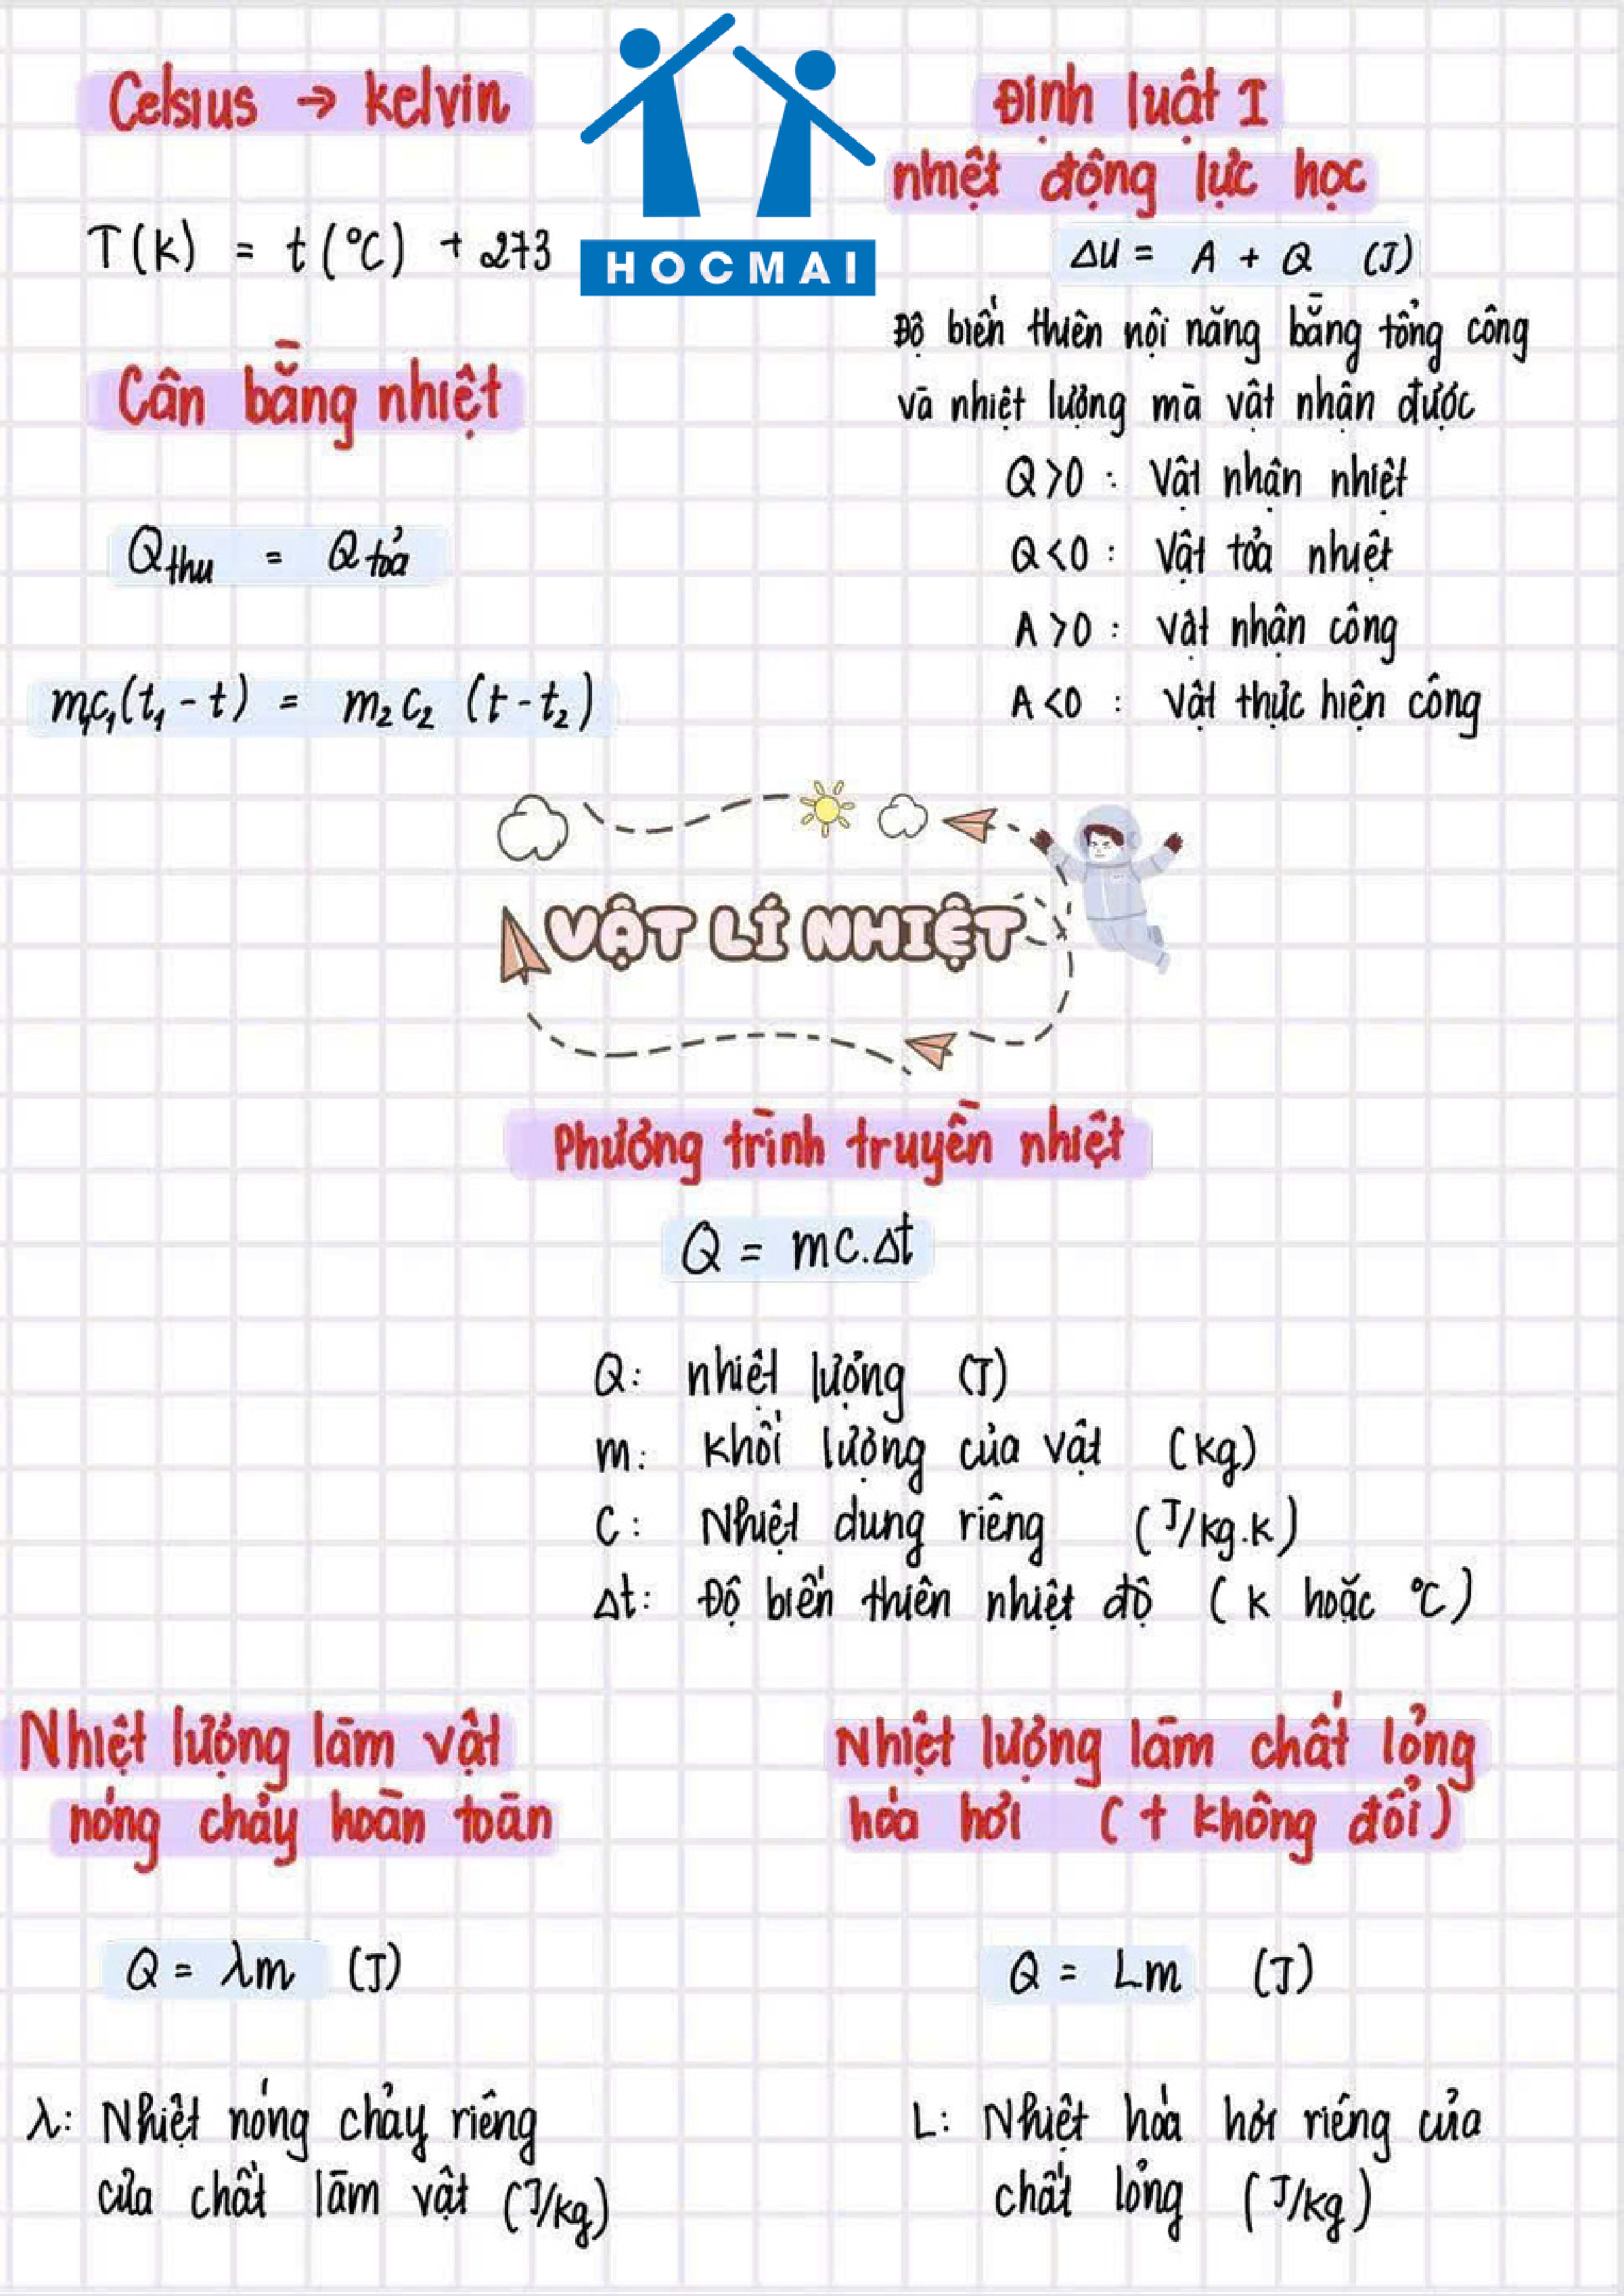 Celsius → kelvin
T(k) = t(°C) + 273
Cân bằng nhiệt
Qthu = Qtỏa
m₁c₁(t₁ - t) = m₂c₂ (t - t₂)
HOCMAI
Định luật I
nhiệt động lực học
ΔU = A + Q (J)
Độ biến thiên nội năng bằng tổng công
và nhiệt lượng mà vật nhận được
Q>0 : Vật nhận nhiệt
Q<0 : Vật tỏa nhiệt
A>0 : Vật nhận công
A<0 : Vật thực hiện công
VẬT LÍ NHIỆT
Phương trình truyền nhiệt
Q = mc.Δt
Q: nhiệt lượng (J)
m: khối lượng của vật (kg)
C: Nhiệt dung riêng (J/kg.k)
Δt: Độ biến thiên nhiệt độ (k hoặc °C)
Nhiệt lượng làm vật
nóng chảy hoàn toàn
Q = λm (J)
λ: Nhiệt nóng chảy riêng
của chất làm vật (J/kg)
Nhiệt lượng làm chất lỏng
hóa hơi (t không đổi)
Q = Lm (J)
L: Nhiệt hóa hơi riêng của
chất lỏng (J/kg)